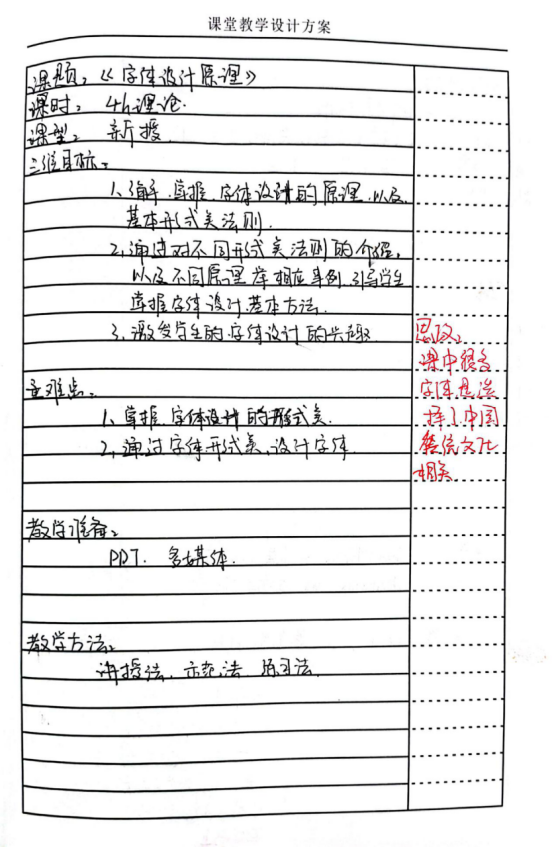 课堂教学设计方案
课题：《字体设计原理》
课时：4h理论.
课型：新授.
三维目标：
1、了解.掌握.字体设计的原理.以及
基本形式美法则.
2、通过对不同形式美法则的介绍,
以及不同原理.举相应事例.引导学生
掌握字体设计基本方法.
3、激发学生的字体设计的兴趣
重难点：
1、掌握.字体设计的形式美.
2、通过字体形式美,设计字体.
教学准备：
PPT. 多媒体.
教学方法：
讲授法. 示范法. 练习法.
思政：
课中很多
字体是选
择了中国
传统文化
相关